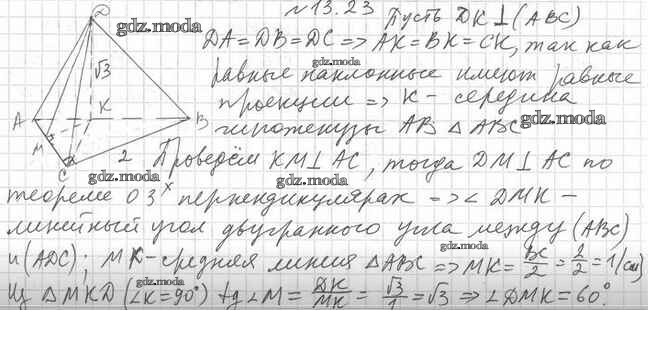 №13.23
Пусть DK⊥(ABC)
DA=DB=DC => AK=BK=CK, так как
равные наклонные имеют равные
проекции => K - середина
гипотенузы AB △ABC
Проведём KM⊥AC, тогда DM⊥AC по
теореме о 3х перпендикулярах => ∠DMK -
линейный угол двугранного угла между (ABC)
и (ADC); MK-средняя линия △ABC => MK = BC/2 = 2/2 = 1(см)
Из △MKD (∠K=90°) tg∠M = DK/MK = √3/1 = √3 => ∠DMK = 60°.
D
√3
A
K
B
M
C
2
gdz.moda
gdz.moda
gdz.moda
gdz.moda
gdz.moda
gdz.moda
gdz.moda
gdz.moda
gdz.moda